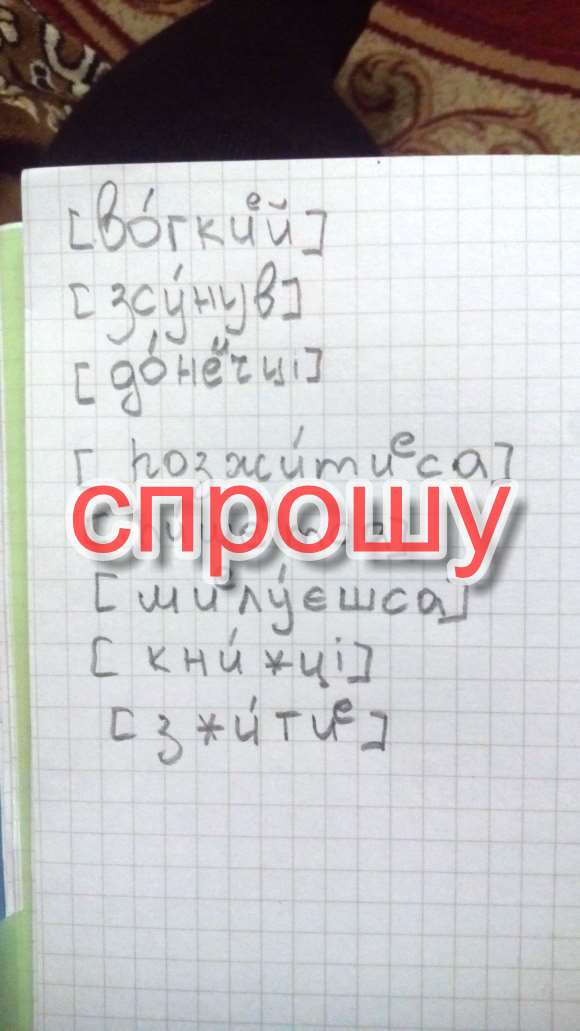 [во́гкиᵉй]
[зсу́нув]
[до́неᶦчці]
[розжи́тиᵉса]
спрошу
[миᵉлу́єшса]
[кни́жці]
[зжи́тиᵉ]